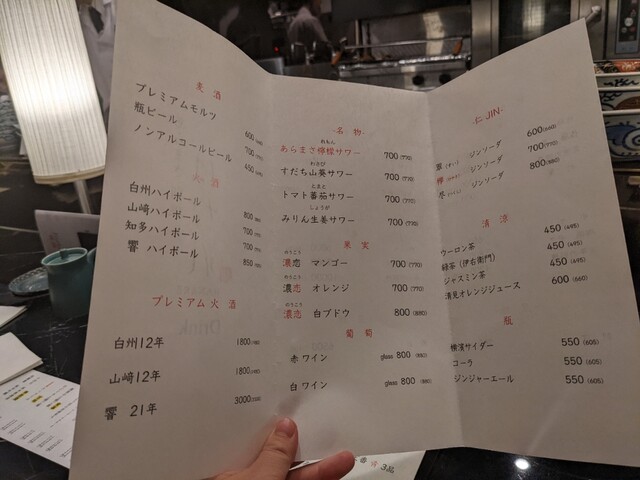 麦 酒
プレミアムモルツ 600
瓶ビール 700
ノンアルコールビール 450
火 酒
白州ハイボール 800
山崎ハイボール 700
知多ハイボール 700
響 ハイボール 850
プレミアム 火 酒
白州12年 1800
山崎12年 1800
響 21年 3000
-名 物-
れもん
あらまさ檸檬サワー 700 (770)
わさび
すだち山葵サワー 700 (770)
とまと
トマト蕃茄サワー 700 (770)
しょうが
みりん生姜サワー 700 (770)
果 実
のうこう
濃恋 マンゴー 700 (770)
のうこう
濃恋 オレンジ 700 (770)
のうこう
濃恋 白ブドウ 800 (880)
葡 萄
赤 ワイン glass 800 (880)
白 ワイン glass 800 (880)
JIN-
翠 (すい) ジンソーダ 600(660)
ジンソーダ 700(770)
ジンソーダ 800(880)
清 涼
ウーロン茶 450 (495)
緑茶 (伊右衛門) 450 (495)
ジャスミン茶 450 (495)
清見オレンジジュース 600 (660)
瓶
横濱サイダー 550 (605)
コーラ 550 (605)
ジンジャーエール 550 (605)